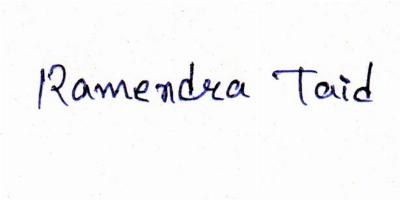 Ramendra Taid